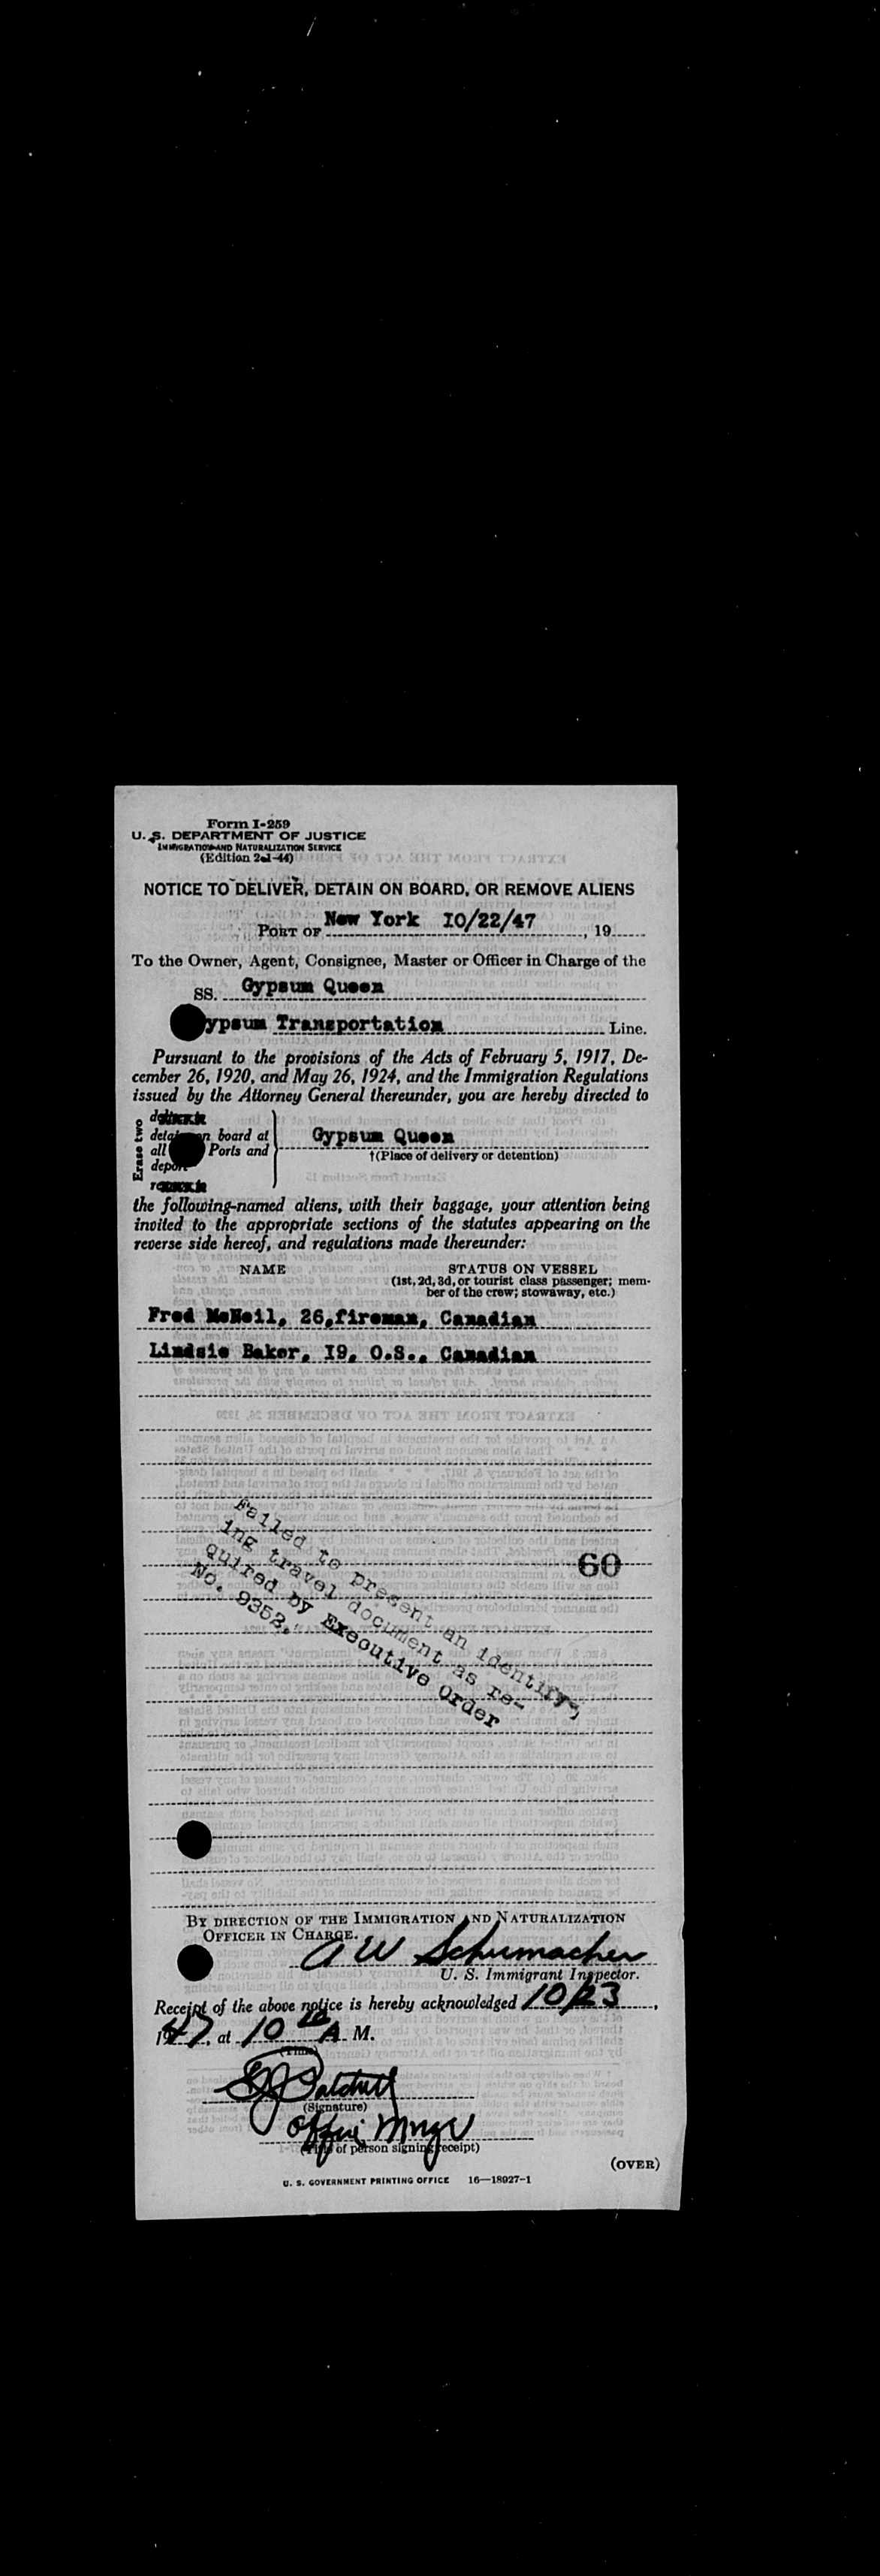 Form I-259
U. S. DEPARTMENT OF JUSTICE
IMMIGRATION AND NATURALIZATION SERVICE
(Edition 2-1-44)
NOTICE TO DELIVER, DETAIN ON BOARD, OR REMOVE ALIENS
PORT OF New York 10/22/47, 19
To the Owner, Agent, Consignee, Master or Officer in Charge of the
SS. Gypsum Queen
ypsum Transportation Line.
Pursuant to the provisions of the Acts of February 5, 1917, De-
cember 26, 1920, and May 26, 1924, and the Immigration Regulations
issued by the Attorney General thereunder, you are hereby directed to
Erase two
detain on board at
all Ports and
deport
Gypsum Queen
†(Place of delivery or detention)
the following-named aliens, with their baggage, your attention being
invited to the appropriate sections of the statutes appearing on the
reverse side hereof, and regulations made thereunder:
NAME STATUS ON VESSEL
(1st, 2d, 3d, or tourist class passenger; mem-
ber of the crew; stowaway, etc.)
Fred McNeil, 26, fireman, Canadian
Lindsie Baker, 19, O.S., Canadian
60
Failed to present an identify-
ing travel document as re-
quired by Executive Order
No. 9352.
BY DIRECTION OF THE IMMIGRATION AND NATURALIZATION
OFFICER IN CHARGE.
A W Schumacher
U. S. Immigrant Inspector.
Receipt of the above notice is hereby acknowledged 10/23,
1947, at 10 A. M.
(Time)
(Signature)
Office Mngr
(Title of person signing receipt)
(OVER)
U. S. GOVERNMENT PRINTING OFFICE 16—18027-1